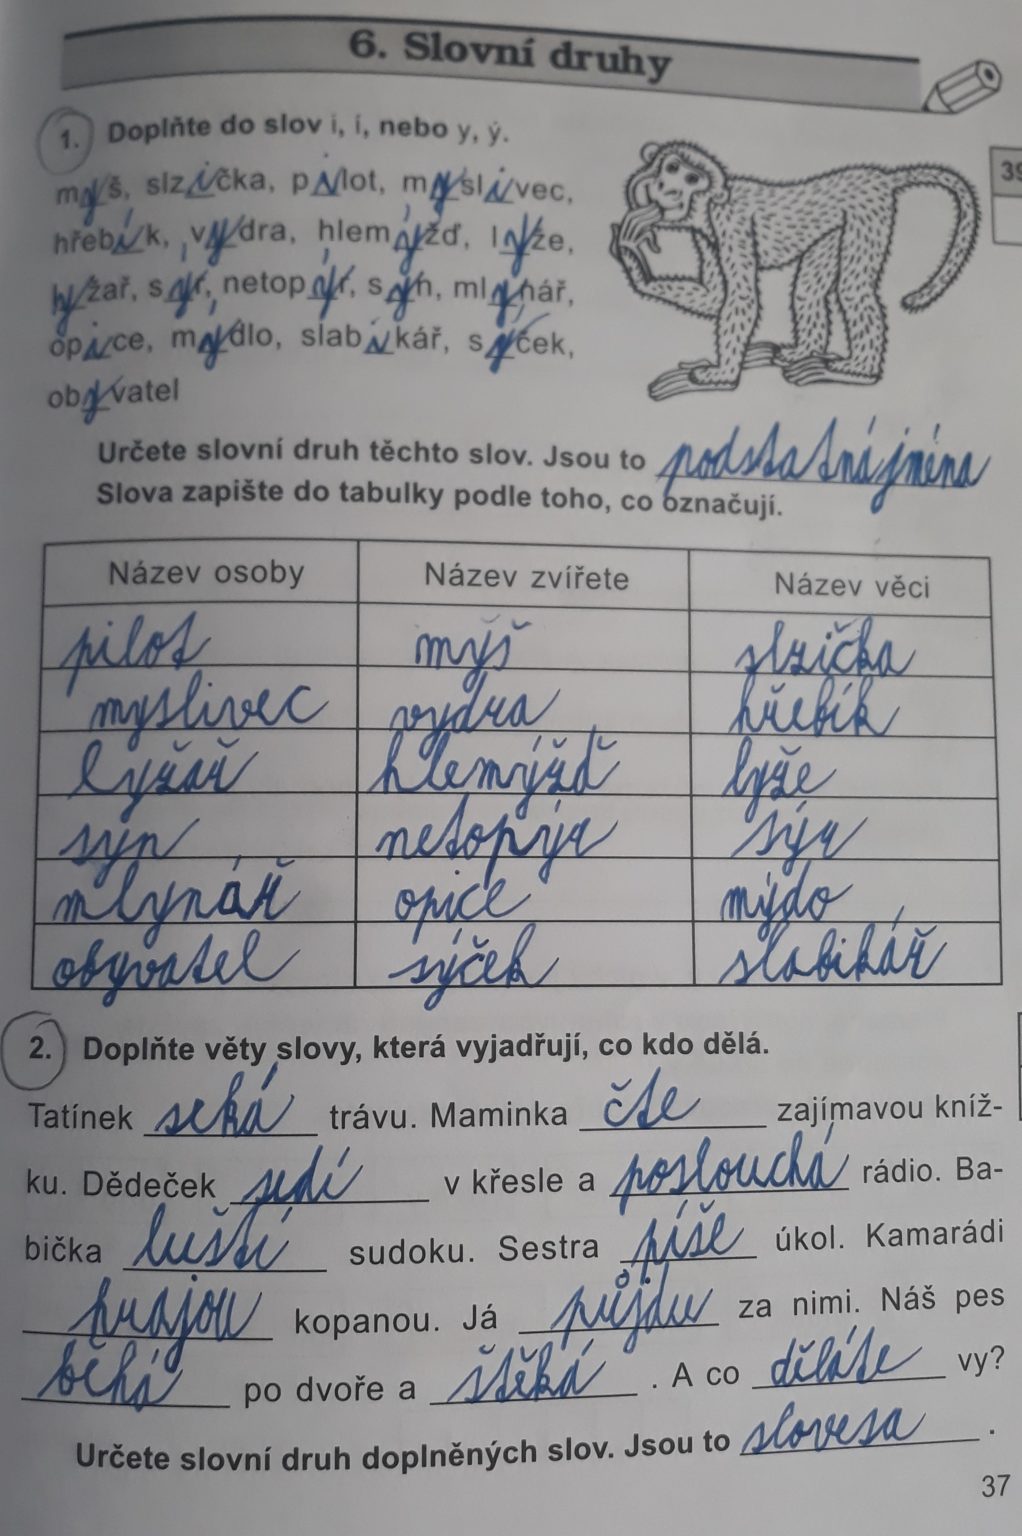 6. Slovní druhy
1. Doplňte do slov i, í, nebo y, ý.
39
myš, slzička, pilot, myslivec,
hřebík, vydra, hlemýžď, lyže,
lyžař, sýr, netopýr, syn, mlynář,
opice, mýdlo, slabikář, sýček,
obyvatel
Určete slovní druh těchto slov. Jsou to podstatná jména
Slova zapište do tabulky podle toho, co označují.
Název osoby Název zvířete Název věci
pilot myš slzička
myslivec vydra hřebík
lyžař hlemýžď lyže
syn netopýr sýr
mlynář opice mýdo
obyvatel sýček slabikář
2. Doplňte věty slovy, která vyjadřují, co kdo dělá.
Tatínek seká trávu. Maminka čte zajímavou kníž-
ku. Dědeček sedí v křesle a poslouchá rádio. Ba-
bička luští sudoku. Sestra píše úkol. Kamarádi
hrajou kopanou. Já půjdu za nimi. Náš pes
běhá po dvoře a štěká . A co děláte vy?
Určete slovní druh doplněných slov. Jsou to slovesa .
37